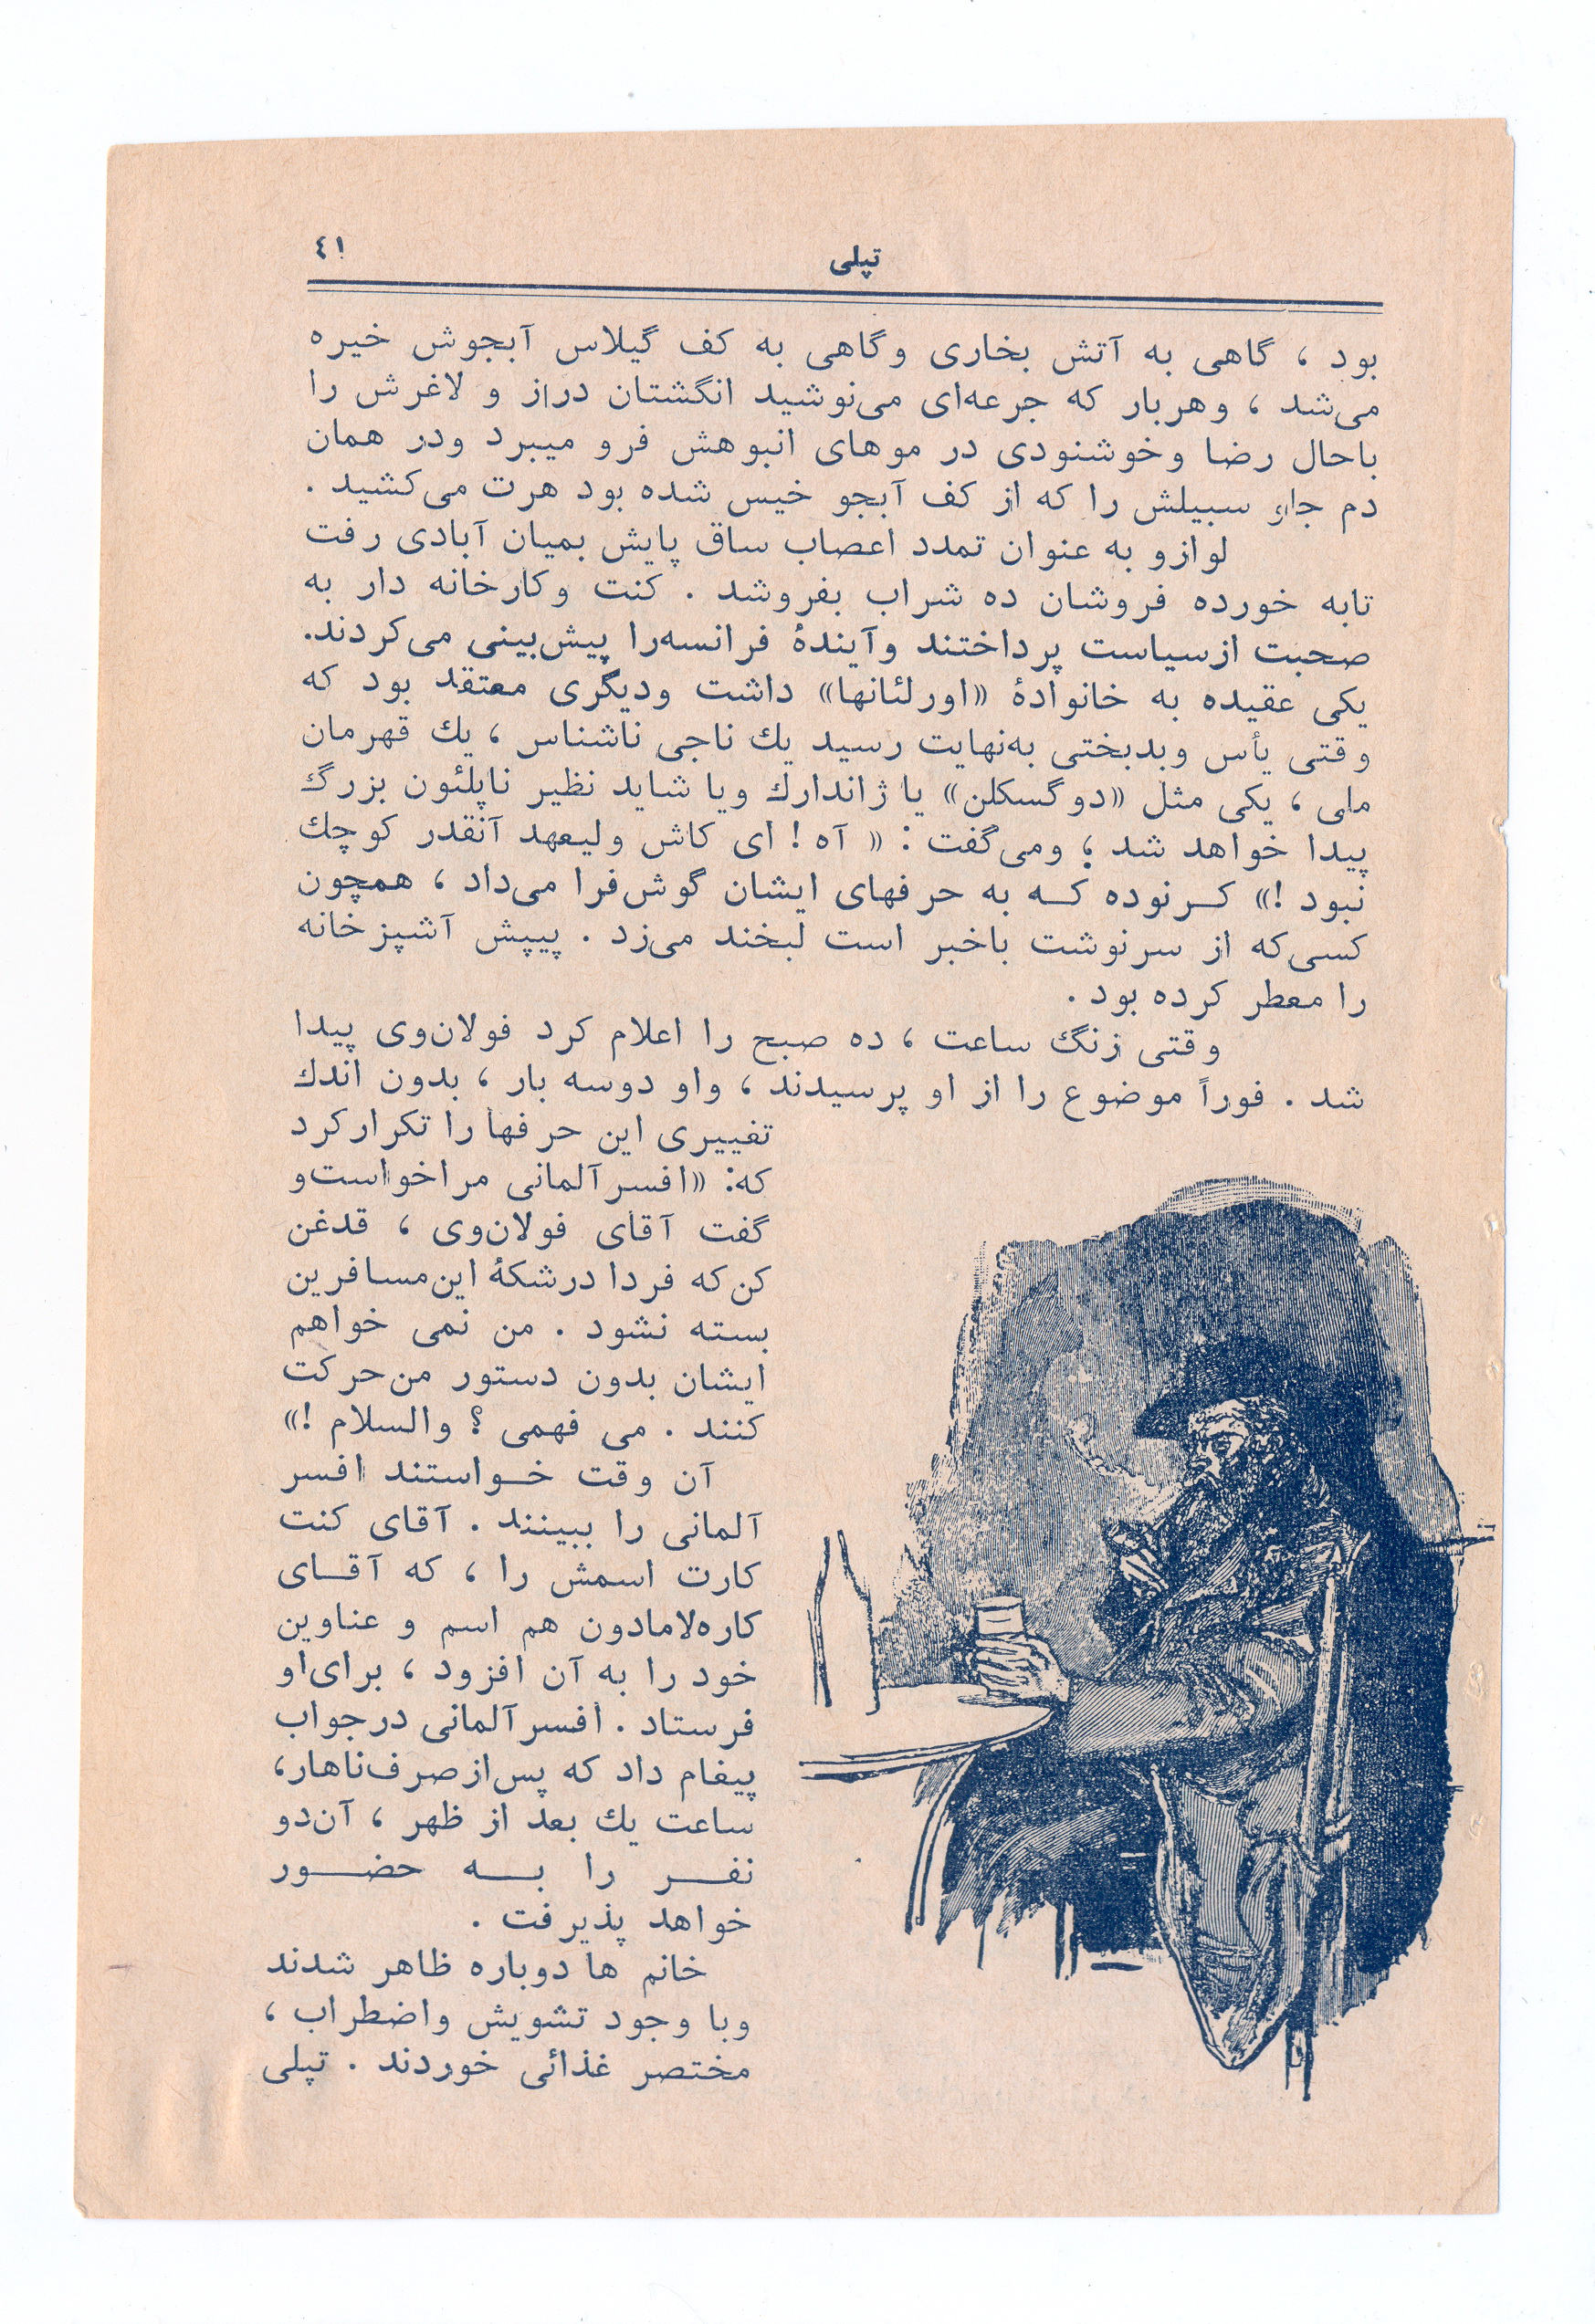 تپلی
٤١
بود ، گاهی به آتش بخاری وگاهی به کف گیلاس آبجوش خیره
می‌شد ، وهربار که جرعه‌ای می‌نوشید انگشتان دراز و لاغرش را
باحال رضا وخوشنودی در موهای انبوهش فرو میبرد ودر همان
دم سبیلش را که از کف آبجو خیس شده بود هرت می‌کشید .
لوازو به عنوان تمدد اعصاب ساق پایش بمیان آبادی رفت
تابه خورده فروشان ده شراب بفروشد . کنت وکارخانه دار به
صحبت ازسیاست پرداختند وآیندهٔ فرانسه‌را پیش‌بینی می‌کردند.
یکی عقیده به خانوادهٔ «اورلئانها» داشت ودیگری معتقد بود که
وقتی یأس وبدبختی به‌نهایت رسید یك ناجی ناشناس ، یك قهرمان
ملی ، یکی مثل «دوگسکلن» یا ژاندارك ویا شاید نظیر ناپلئون بزرگ
پیدا خواهد شد ؛ ومی‌گفت : « آه ! ای کاش ولیعهد آنقدر کوچك
نبود !» کرنوده که به حرفهای ایشان گوش‌فرا می‌داد ، همچون
کسی‌که از سرنوشت باخبر است لبخند می‌زد . پیپش آشپزخانه
را معطر کرده بود .
وقتی زنگ ساعت ، ده صبح را اعلام کرد فولان‌وی پیدا
شد . فوراً موضوع را از او پرسیدند ، واو دوسه بار ، بدون اندك
تغییری این حرفها را تکرارکرد
که: «افسرآلمانی مراخواست‌و
گفت آقای فولان‌وی ، قدغن
کن‌که فردا درشکهٔ این‌مسافرین
بسته نشود . من نمی خواهم
ایشان بدون دستور من‌حرکت
کنند . می فهمی ؟ والسلام !»
آن وقت خواستند افسر
آلمانی را ببینند . آقای کنت
کارت اسمش را ، که آقای
کاره‌لامادون هم اسم و عناوین
خود را به آن افزود ، برای‌او
فرستاد . افسرآلمانی درجواب
پیغام داد که پس‌ازصرف‌ناهار،
ساعت یك بعد از ظهر ، آن‌دو
نفر را به حضور
خواهد پذیرفت .
خانم ها دوباره ظاهر شدند
وبا وجود تشویش واضطراب ،
مختصر غذائی خوردند . تپلی